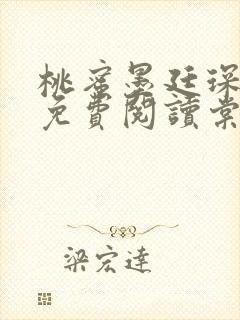 桃蜜墨廷琛
免費閱讀棠
梁宏達